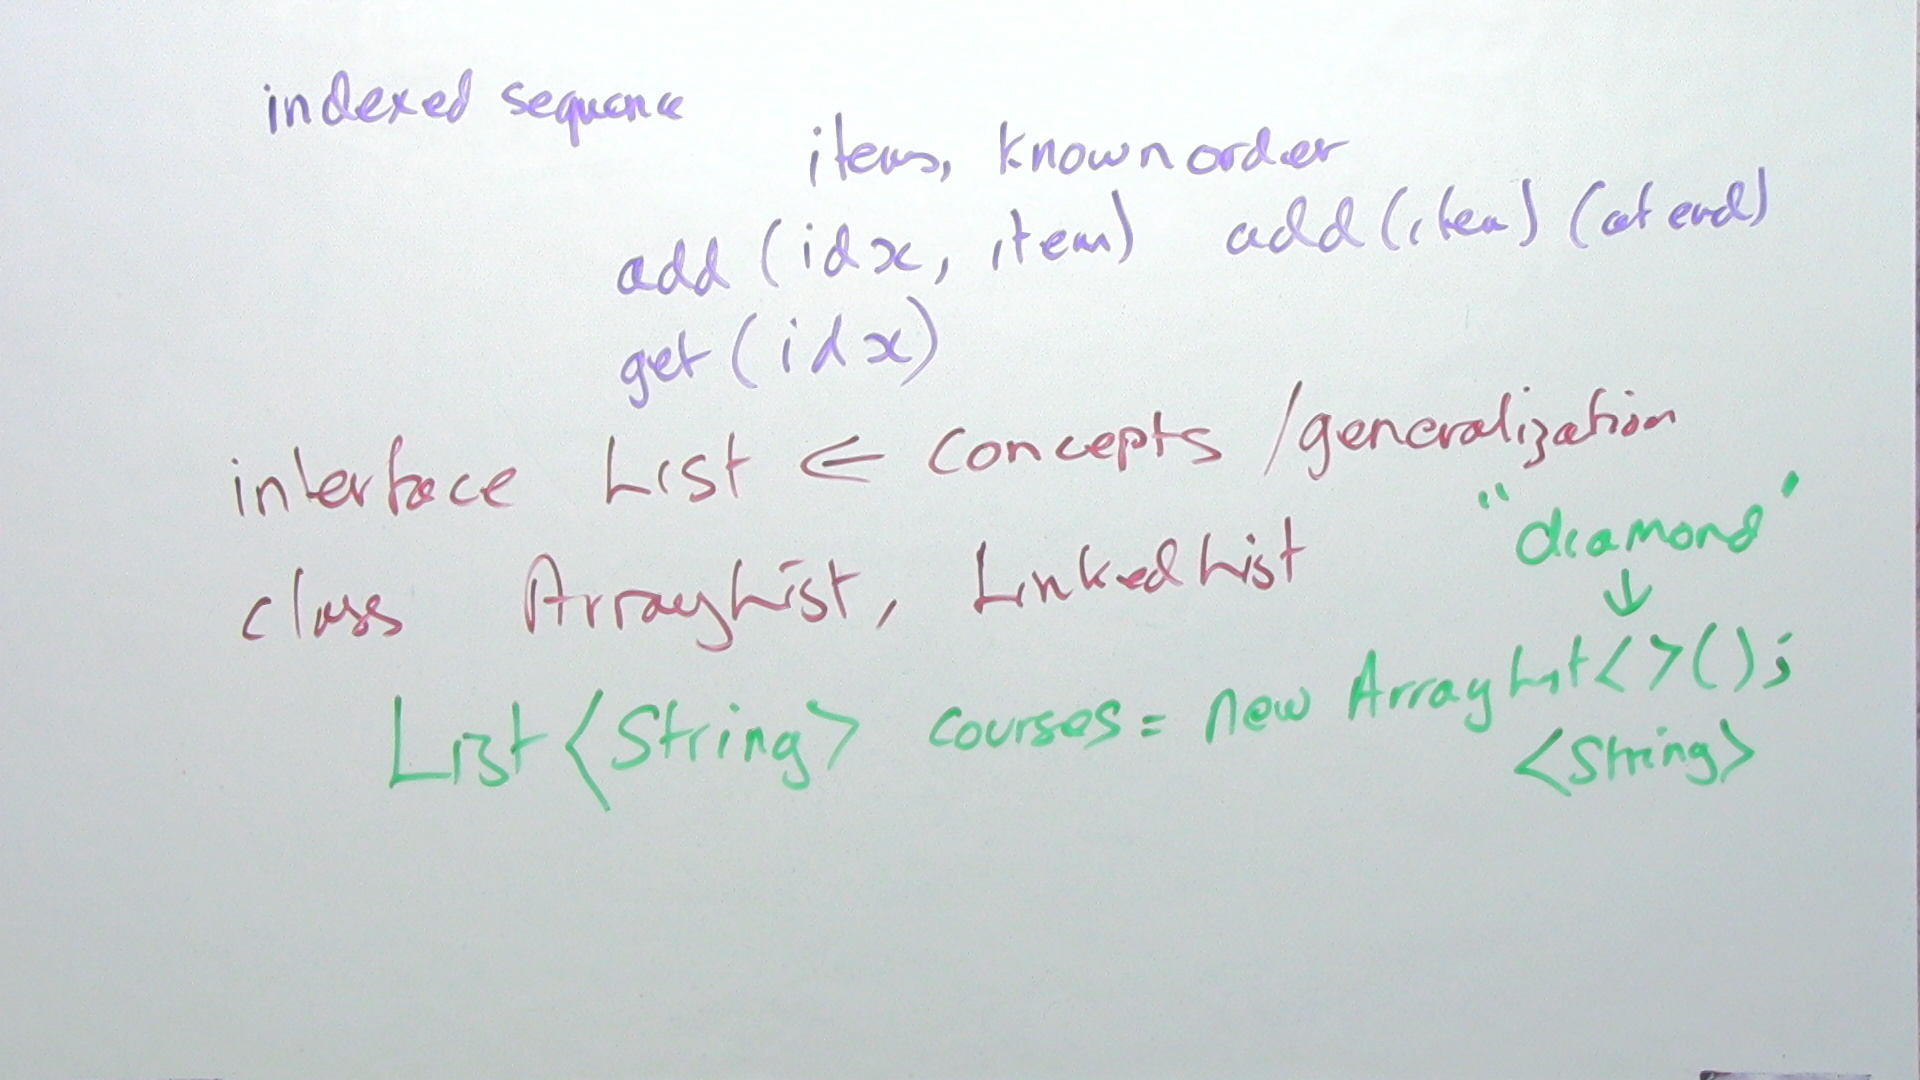 indexed sequence
items, known order
add (idx, item) add (item) (at end)
get (idx)
interface List ← concepts / generalization
class ArrayList, LinkedList
"diamond"
↓
List<String> courses = new ArrayList<>();
<String>